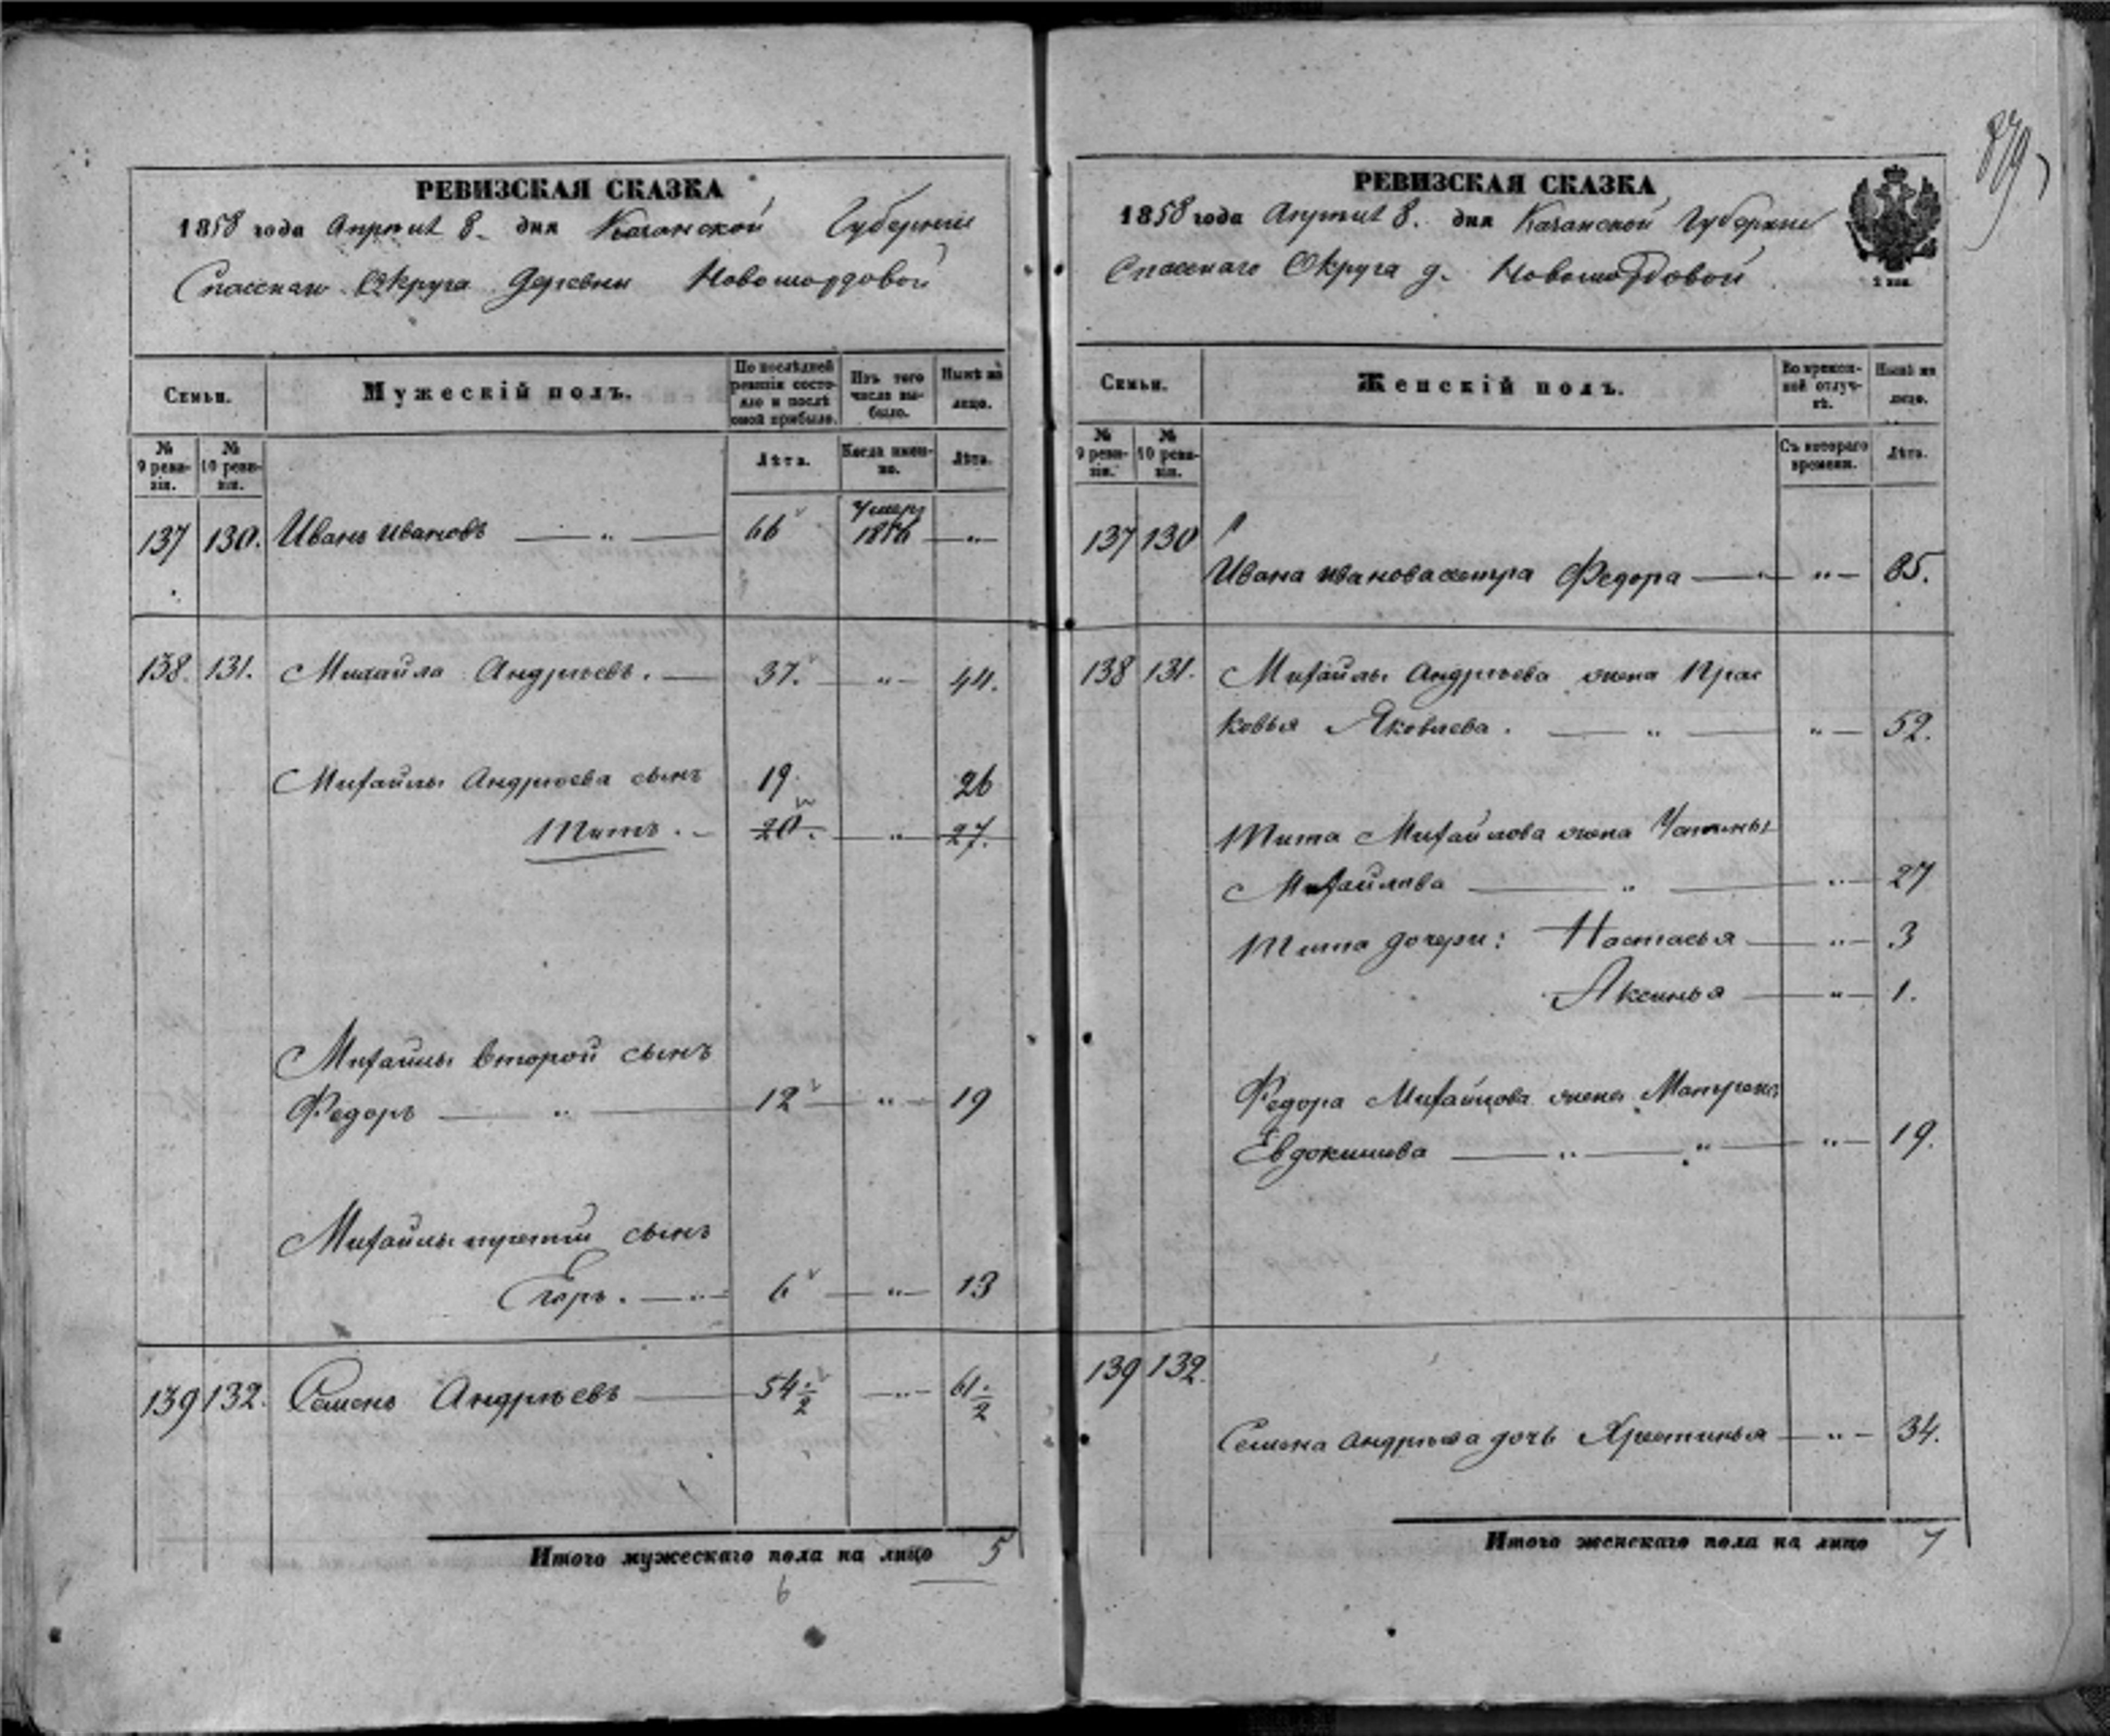 РЕВИЗСКАЯ СКАЗКА
1858 года Апреля 8. дня Казанской Губернии
Спасскаго Округа Деревни Новомордовой
Семьи.
Мужескій полъ.
По послѣдней ревизіи состояло и послѣ оной прибыло.
Изъ того числа выбыло.
Нынѣ на лицо.
№ 9 ревизіи.
№ 10 ревизіи.
Лѣта.
Когда именно.
Лѣта.
137 130. Иванъ Ивановъ — „ — 66 Умеръ 1856 — „ —
138. 131. Михайла Андрѣевъ. — 37. — „ — 44.
Михайлы Андрѣева сынъ 19. 26
Титъ. — 20. — „ — 27.
Михайлы второй сынъ
Федоръ — „ — 12 — „ — 19
Михайлы третій сынъ
Егоръ. — „ — 6 — „ — 13
139 132. Семенъ Андрѣевъ — 54 1/2 — „ — 61 1/2
Итого мужескаго пола на лицо 5
6
879
РЕВИЗСКАЯ СКАЗКА
1858 года Апреля 8. дня Казанской Губерніи
Спасскаго Округа д. Новомордовой
Семьи.
Женскій полъ.
Во временной отлучкѣ.
Нынѣ на лицо.
№ 9 ревизіи.
№ 10 ревизіи.
Съ котораго времени.
Лѣта.
137 130
Ивана Иванова сестра Федора — „ — 85.
138 131. Михайлы Андрѣева жена Прас
ковья Яковлева. — „ — „ — 52.
Тита Михайлова жена Устинья
Михайлова — „ — „ — 27
Тита дочери: Настасья — „ — 3
Аксинья — „ — 1.
Федора Михайлова жена Матрена
Евдокимова — „ — „ — „ — 19.
139 132.
Семена Андрѣева дочь Хрестинья — „ — 34.
Итого женскаго пола на лицо 7